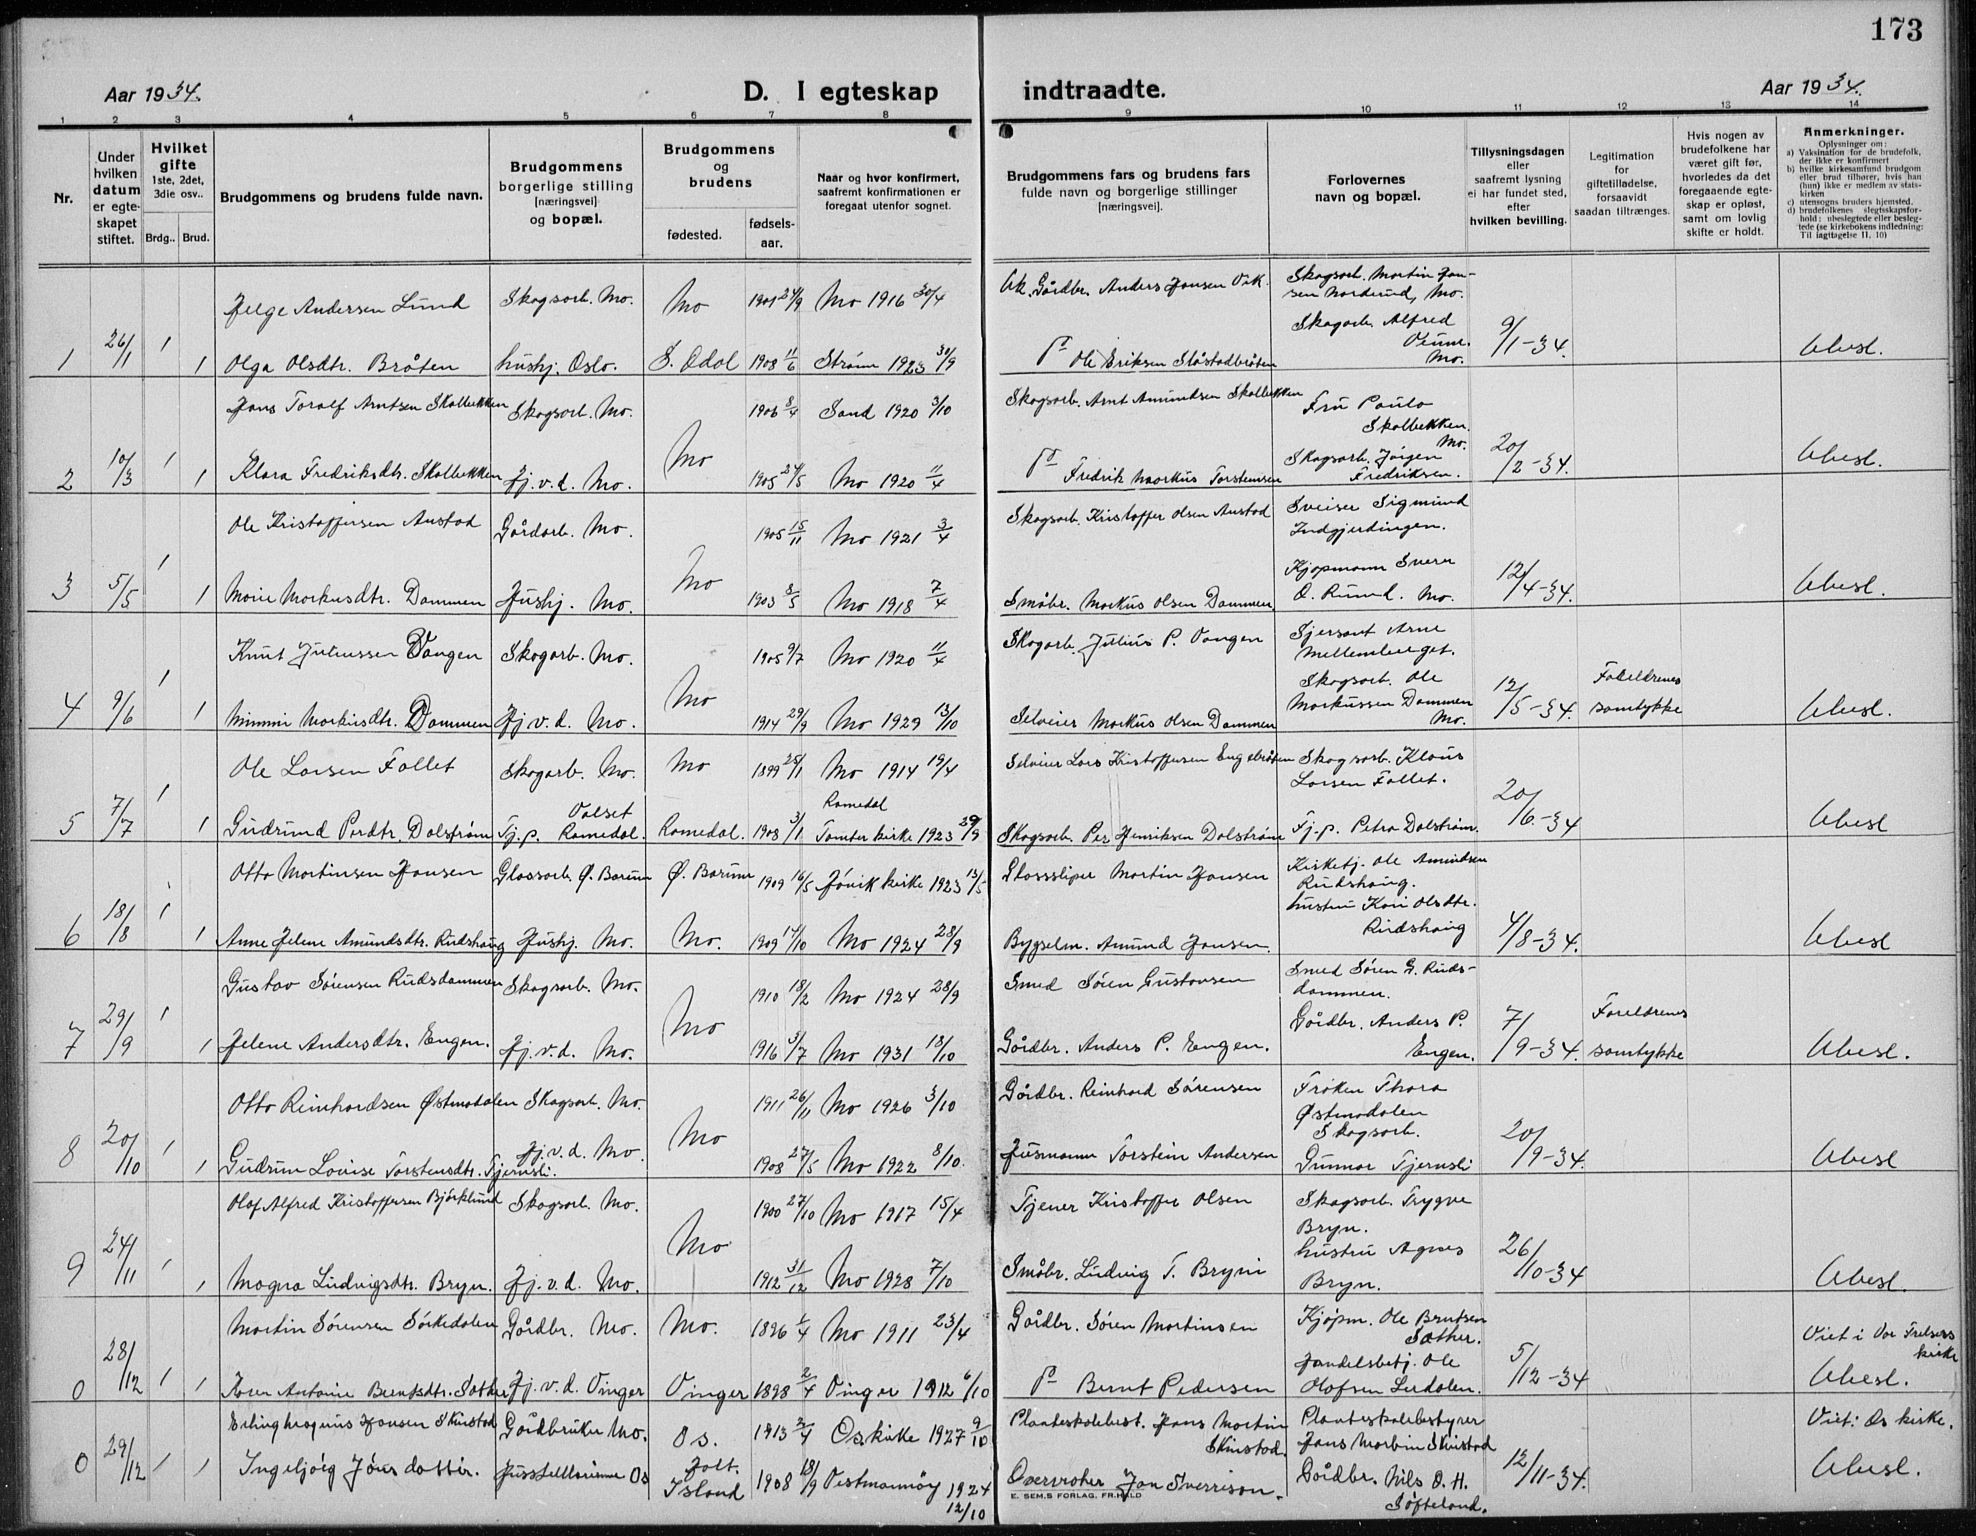 173
Aar 1934.
D. I egteskap indtraadte.
Aar 1934.
1 2 3 4 5 6 7 8 9 10 11 12 13 14
Nr.
Under hvilken datum er egteskapet stiftet.
Hvilket gifte
1ste, 2det, 3die osv..
Brdg.. Brud.
Brudgommens og brudens fulde navn.
Brudgommens borgerlige stilling [næringsvei] og bopæl.
Brudgommens og brudens
fødested.
fødsels-aar.
Naar og hvor konfirmert, saafremt konfirmationen er foregaat utenfor sognet.
Brudgommens fars og brudens fars fulde navn og borgerlige stillinger [næringsvei].
Forlovernes navn og bopæl.
Tillysningsdagen eller saafremt lysning ei har fundet sted, efter hvilken bevilling.
Legitimation for giftetilladelse, forsaavidt saadan tiltrænges.
Hvis nogen av brudefolkene har været gift før, hvorledes da det foregaaende egteskap er opløst, samt om lovlig skifte er holdt.
Anmerkninger.
Oplysninger om:
a) Vaksination for de brudefolk, der ikke er konfirmert
b) hvilke kirkesamfund brudgom eller brud tilhører, hvis han (hun) ikke er medlem av statskirken
c) utensogns bruders hjemsted.
d) brudefolkenes slegtsskapsforhold; ubeslegtede eller beslegtede (se kirkebokens indledning: Til iagttagelse II. 10)
Helge Andersen Lund Skogsarb. Mo. Mo 1901 24/9 Mo 1916 30/4 Gårdbr. Anders Hansen Vik. Skogsarb. Martin Hansen Norderud, Mo.
1 26/1 1 1 Olga Olsdtr. Bråten hushj. Oslo. S. Odal 1908 11/6 Strøm 1923 30/9 Ole Eriksen Slåstadbråten Skogarb. Alfred Mo. 9/1-34. Ubesl.
Hans Toralf Arntsen Skolbekken Skogsarb. Mo. 1906 8/4 Sand 1920 3/10 Skogsarb. Arnt Amundsen Skolbekken Fru Paula Skolbekken. Mo.
2 10/3 1 1 Klara Fredriksdtr. Skolbekken Hj.v.d. Mo. Mo 1905 24/5 Mo 1920 11/4 Fredrik Markus Torstensen Skogsarb. Jørgen Fredriksen. 20/2-34. Ubesl.
Ole Kristoffersen Austad Gårdarb. Mo. 1905 15/11 Mo 1921 3/4 Skogsarb. Kristoffer Olsen Austad Sveiser Sigmund Indgjerdingen.
3 5/5 1 1 Marie Markusdtr. Dammen Hushj. Mo. Mo 1903 8/5 Mo 1918 7/4 Småbr. Markus Olsen Dammen Kjøpmann Sverre O. Rund. Mo. 12/4-34. Ubesl.
Knut Juliussen Vangen Skogarb. Mo. 1905 9/7 Mo 1920 11/4 Skogarb. Julius P. Vangen Sjersant Arne Mellemberget.
4 9/6 1 1 Mimmi Markusdtr. Dammen Hj.v.d. Mo. Mo 1914 29/9 Mo 1929 13/10 Selveier Markus Olsen Dammen Skogsarb. Ole Markussen Dammen Mo. 12/5-34. Foreldrenes samtykke Ubesl.
Ole Larsen Fallet Skogarb. Mo. Mo 1899 25/1 Mo 1914 19/4 Selveier Lars Kristoffersen Engelbråten Skogsarb. Klaus Larsen Fallet.
5 7/7 1 1 Gudrund Perdtr. Dalstrøm Tj.p. Valset Romedal. Romedal. 1908 3/1 Romedal Tomter kirke 1923 29/9 Skogsarb. Per Henriksen Dalstrøm Tj.p. Petra Dalstrøm. 20/6-34 Ubesl
Otto Martinsen Hansen Glassarb. Ø. Bærum Ø. Bærum 1909 16/5 Høvik kirke 1923 13/5 Glasssliper Martin Hansen Kirketj. Ole Amundsen Rudshaug.
6 18/8 1 1 Anne Helene Amundsdtr. Rudshaug Hushj. Mo. Mo. 1909 17/10 Mo 1924 28/9 Bygselm. Amund Hansen. hustru Kari Olsdtr. Rudshaug 4/8-34. Ubesl
Gustav Sørensen Rudsdammen Skogsarb. Mo. 1910 18/2 Mo 1924 28/9 Smed Søren Gustavsen Smed Søren G. Rudsdammen.
7 29/9 1 1 Helene Andersdtr. Engen. Hj.v.d. Mo. Mo 1916 3/7 Mo 1931 18/10 Gårdbr. Anders P. Engen. Gårdbr. Anders P. Engen. 7/9-34. Foreldrenes samtykke Ubesl.
Otto Reinhardsen Østmodalen Skogsarb. Mo. 1911 26/11 Mo 1926 3/10 Gårdbr. Reinhard Sørensen Frøken Thora Østmodalen
8 20/10 1 1 Gudrun Lovise Torstensdtr. Tjernsli. Hj.v.d. Mo. Mo 1908 27/5 Mo 1922 8/10. Husmann Torstein Andersen Skogsarb. Gunnar Tjernsli 20/9-34. Ubesl
Olaf Alfred Kristoffersen Bjørklund Skogsarb. Mo. 1900 27/10 Mo 1917 15/4 Tjener Kristoffer Olsen Skogsarb. Trygve Bryn.
9 24/11 1 1 Magna Ludvigsdtr. Bryn. Hj.v.d. Mo. Mo 1912 31/12 Mo 1928 7/10 Småbr. Ludvig T. Bryni hustru Agnes Bryn. 26/10-34 Ubesl.
Martin Sørensen Sørkedalen Gårdbr. Mo. Mo. 1896 1/4 Mo 1911 23/4 Gårdbr. Søren Martinsen Kjøpm. Ole Berntsen Sæther. Viet i Vor Frelsers kirke
0 28/12 1 1 Karen Antonie Berntsdtr. Sæther Hj.v.d. Vinger Vinger 1898 2/4 Vinger 1912 6/10 Bernt Pedersen Handelsbetj. Ole Olafsen Lerdalen. 5/12-34 Ubesl.
Erling Magnus Hansen Skinstad Gårdbruker Mo. Os. 1913 3/4 Os kirke 1927 9/10 Planteskolebest. Hans Martin Skinstad Planteskolebestyrer Hans Martin Skinstad Viet: Os kirke.
0 29/12 1 1 Ingebjørg Jónsdottir. Husstellærinne Os Holt. Island 1908 18/9 Vestmannøy 1924 12/10 Overvroker Jon Sverrison. Gårdbr. Nils O. H. Søfteland. 12/11-34. Ubesl.
E. SEM.S FORLAG. FR.HALD